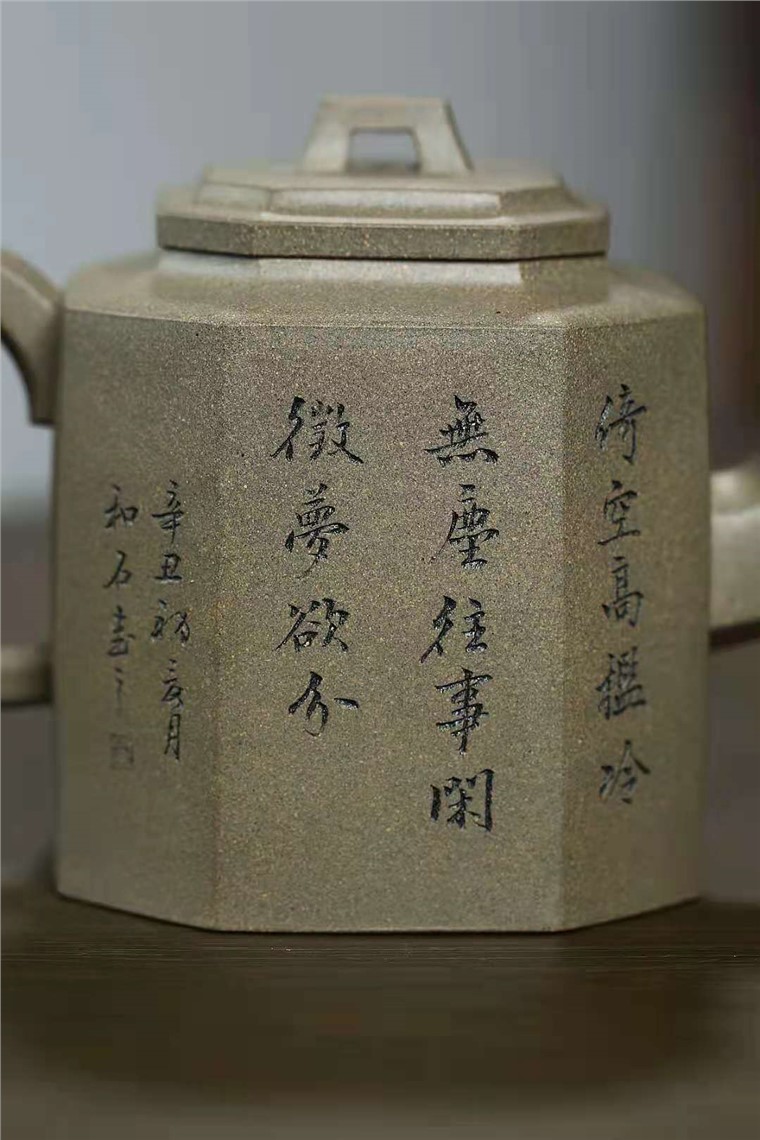 倚空高檻冷
無塵往事閑
徵夢欲分
辛丑初夏月
和石書之